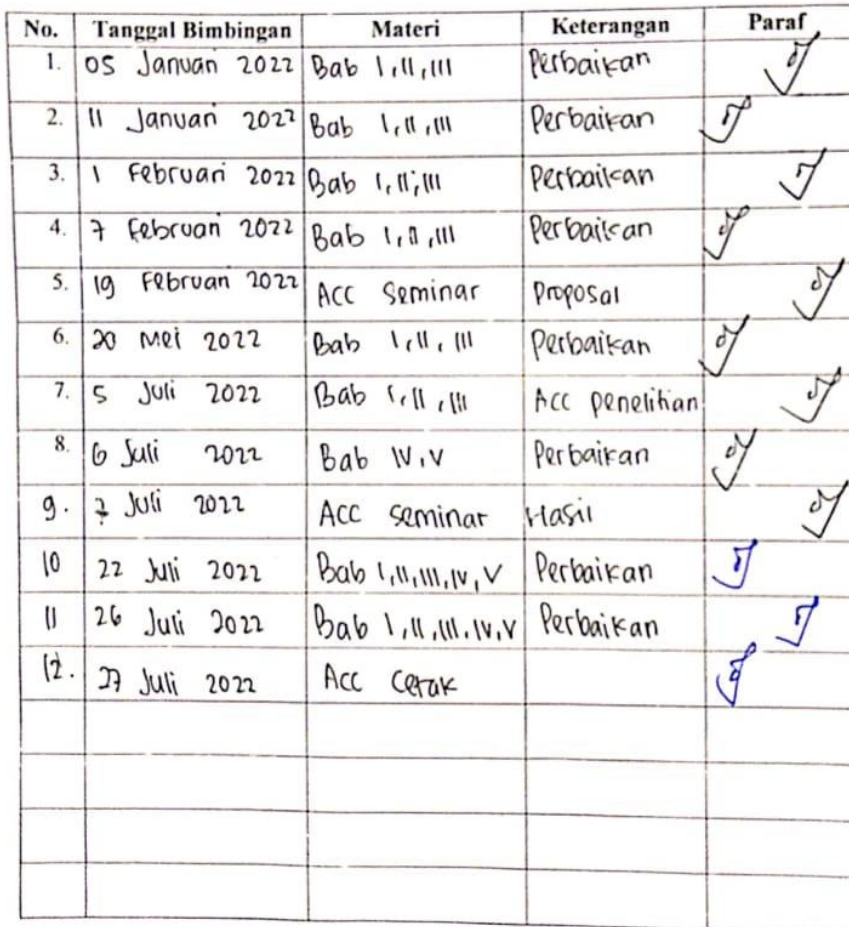 No. Tanggal Bimbingan Materi Keterangan Paraf
1. 05 Januari 2022 Bab I, II, III Perbaikan
2. 11 Januari 2022 Bab I, II, III Perbaikan
3. 1 Februari 2022 Bab I, II, III Perbaikan
4. 7 Februari 2022 Bab I, II, III Perbaikan
5. 19 Februari 2022 ACC Seminar Proposal
6. 20 Mei 2022 Bab I, II, III Perbaikan
7. 5 Juli 2022 Bab I, II, III Acc penelitian
8. 6 Juli 2022 Bab IV, V Perbaikan
9. 7 Juli 2022 ACC seminar Hasil
10 22 Juli 2022 Bab I, II, III, IV, V Perbaikan
11 26 Juli 2022 Bab I, II, III, IV, V Perbaikan
12. 27 Juli 2022 Acc Cetak